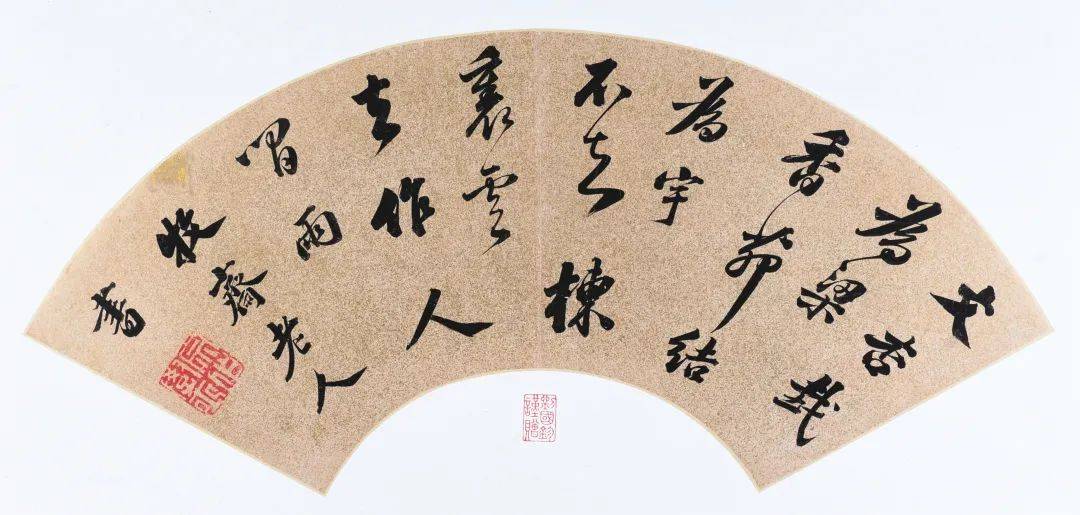 文杏裁
為梁
香茅結
為宇
不知棟
裏雲
去作人
間雨
牧齋老人
書
國
謹贈